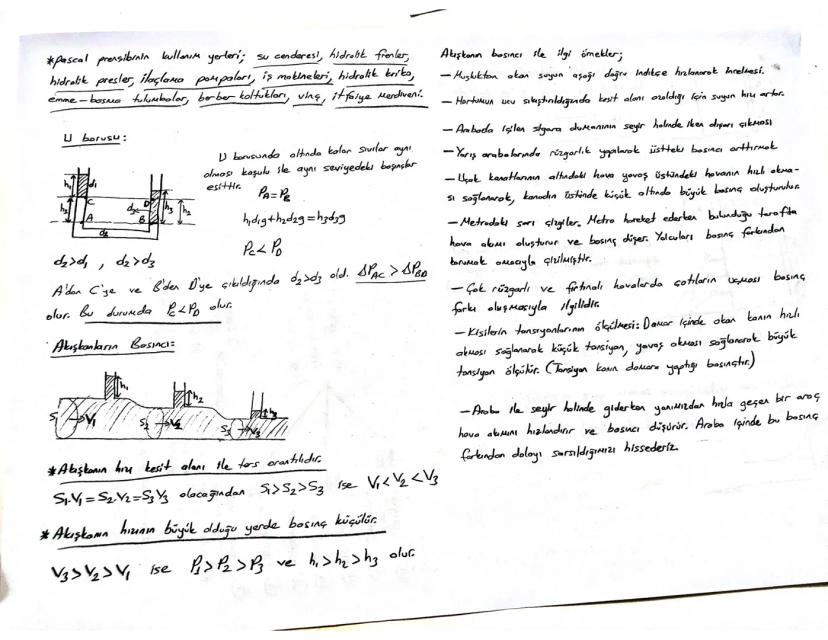 *Pascal prensibinin kullanım yerleri; su cenderesi, hidrolik frenler,
hidrolik presler, ilaçlama pompaları, iş makineleri, hidrolik kriko,
emme-basma tulumbalar, berber koltukları, vinç, itfaiye merdiveni.
U borusu:
U borusunda altında kalan sıvılar aynı
olması koşulu ile aynı seviyedeki basınçlar
eşittir.
PA=PB
h1d1g+h2d2g=h3d3g
PC<PD
h1
d1
h2
C
A
d2
D
B
h3
h2
d2
d2>d1 , d2>d3
A'dan C'ye ve B'den D'ye çıkıldığında d2>d3 old. ΔPAC>ΔPBD
olur. Bu durumda PC<PD olur.
Akışkanların Basıncı:
h1
h2
h3
S1
V1
S2
V2
S3
V3
*Akışkanın hızı kesit alanı ile ters orantılıdır.
S1.V1=S2.V2=S3V3 olacağından S1>S2>S3 ise V1<V2<V3
*Akışkanın hızının büyük olduğu yerde basınç küçülür.
V3>V2>V1 ise P1>P2>P3 ve h1>h2>h3 olur.
Akışkanın basıncı ile ilgi örnekler;
-Musluktan akan suyun aşağı doğru indikçe hızlanarak incelmesi.
-Hortumun ucu sıkıştırıldığında kesit alanı azaldığı için suyun hızı artar.
-Arabada içilen sigara dumanının seyir halinde iken dışarı çıkması
-Yarış arabalarında rüzgarlık yapılarak üstteki basıncı arttırmak
-Uçak kanatlarının altındaki hava yavaş üstündeki havanın hızlı akma-
sı sağlanarak, kanadın üstünde küçük altında büyük basınç oluşturulur.
-Metrodaki sarı çizgiler. Metro hareket ederken bulunduğu tarafta
hava akımı oluşturur ve basınç düşer. Yolcuları basınç farkından
korumak amacıyla çizilmiştir.
-Çok rüzgarlı ve fırtınalı havalarda çatıların uçması basınç
farkı oluşmasıyla ilgilidir.
-Kişilerin tansiyonlarının ölçülmesi: Damar içinde akan kanın hızlı
akması sağlanarak küçük tansiyon, yavaş akması sağlanarak büyük
tansiyon ölçülür. (Tansiyon kanın damara yaptığı basınçtır.)
-Araba ile seyir halinde giderken yanımızdan hızla geçen bir araç
hava akımını hızlandırır ve basıncı düşürür. Araba içinde bu basınç
farkından dolayı sarsıldığımızı hissederiz.